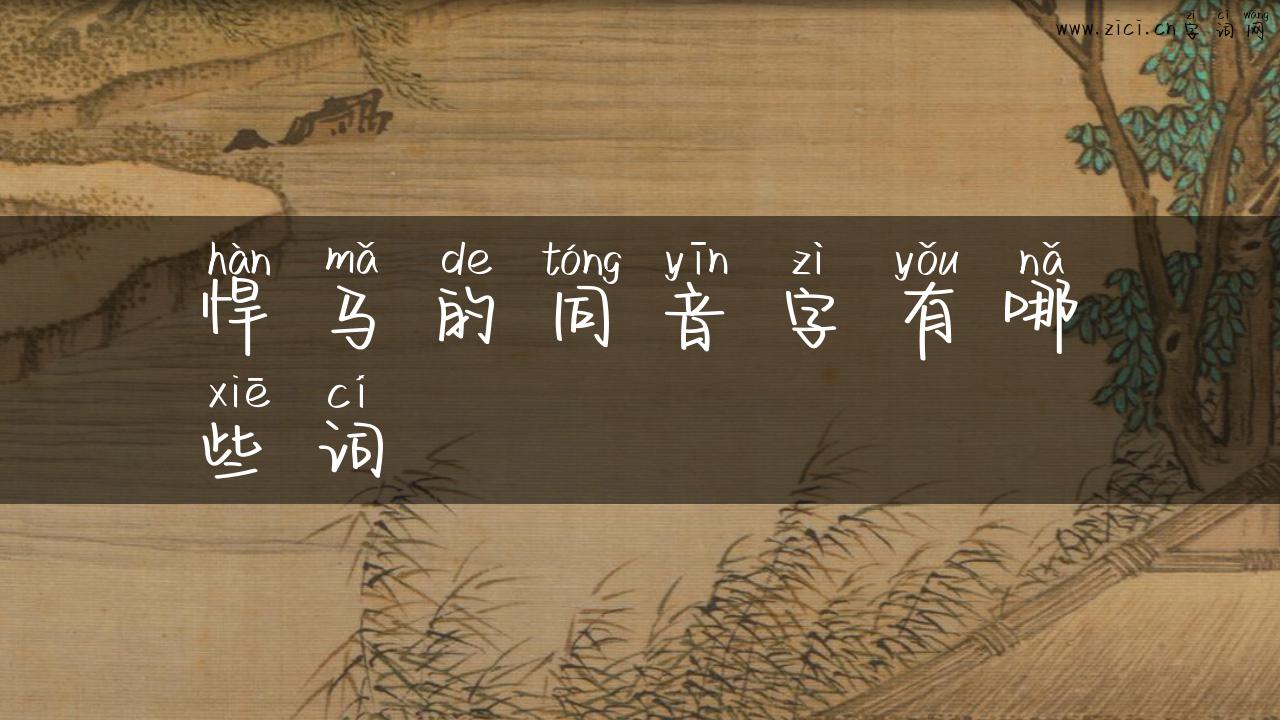 zì cí wǎng
www.zici.cn字词网
hàn mǎ de tóng yīn zì yǒu nǎ
悍马的同音字有哪
xiē cí
些词